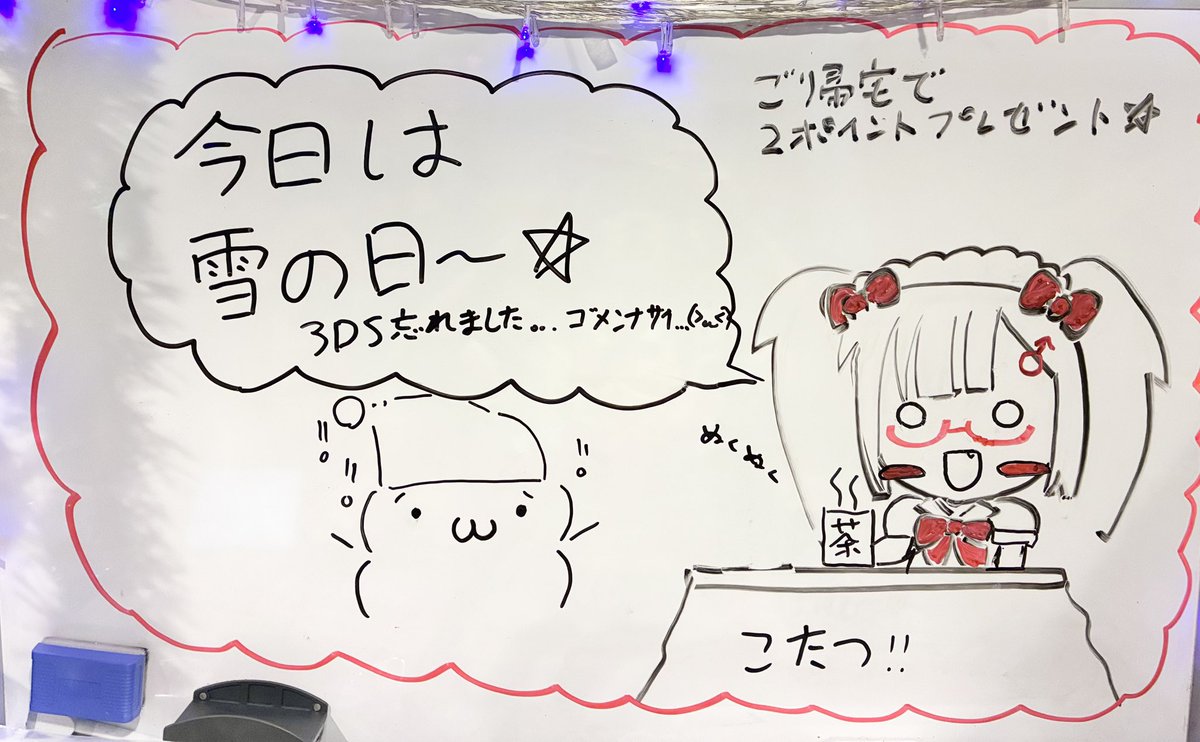 今日は
雪の日～☆
3DS忘れました... ゴメンナサイ...(>_<)
ごり帰宅で
2ポイントプレゼント☆
ぬくぬく
茶
こたつ!!